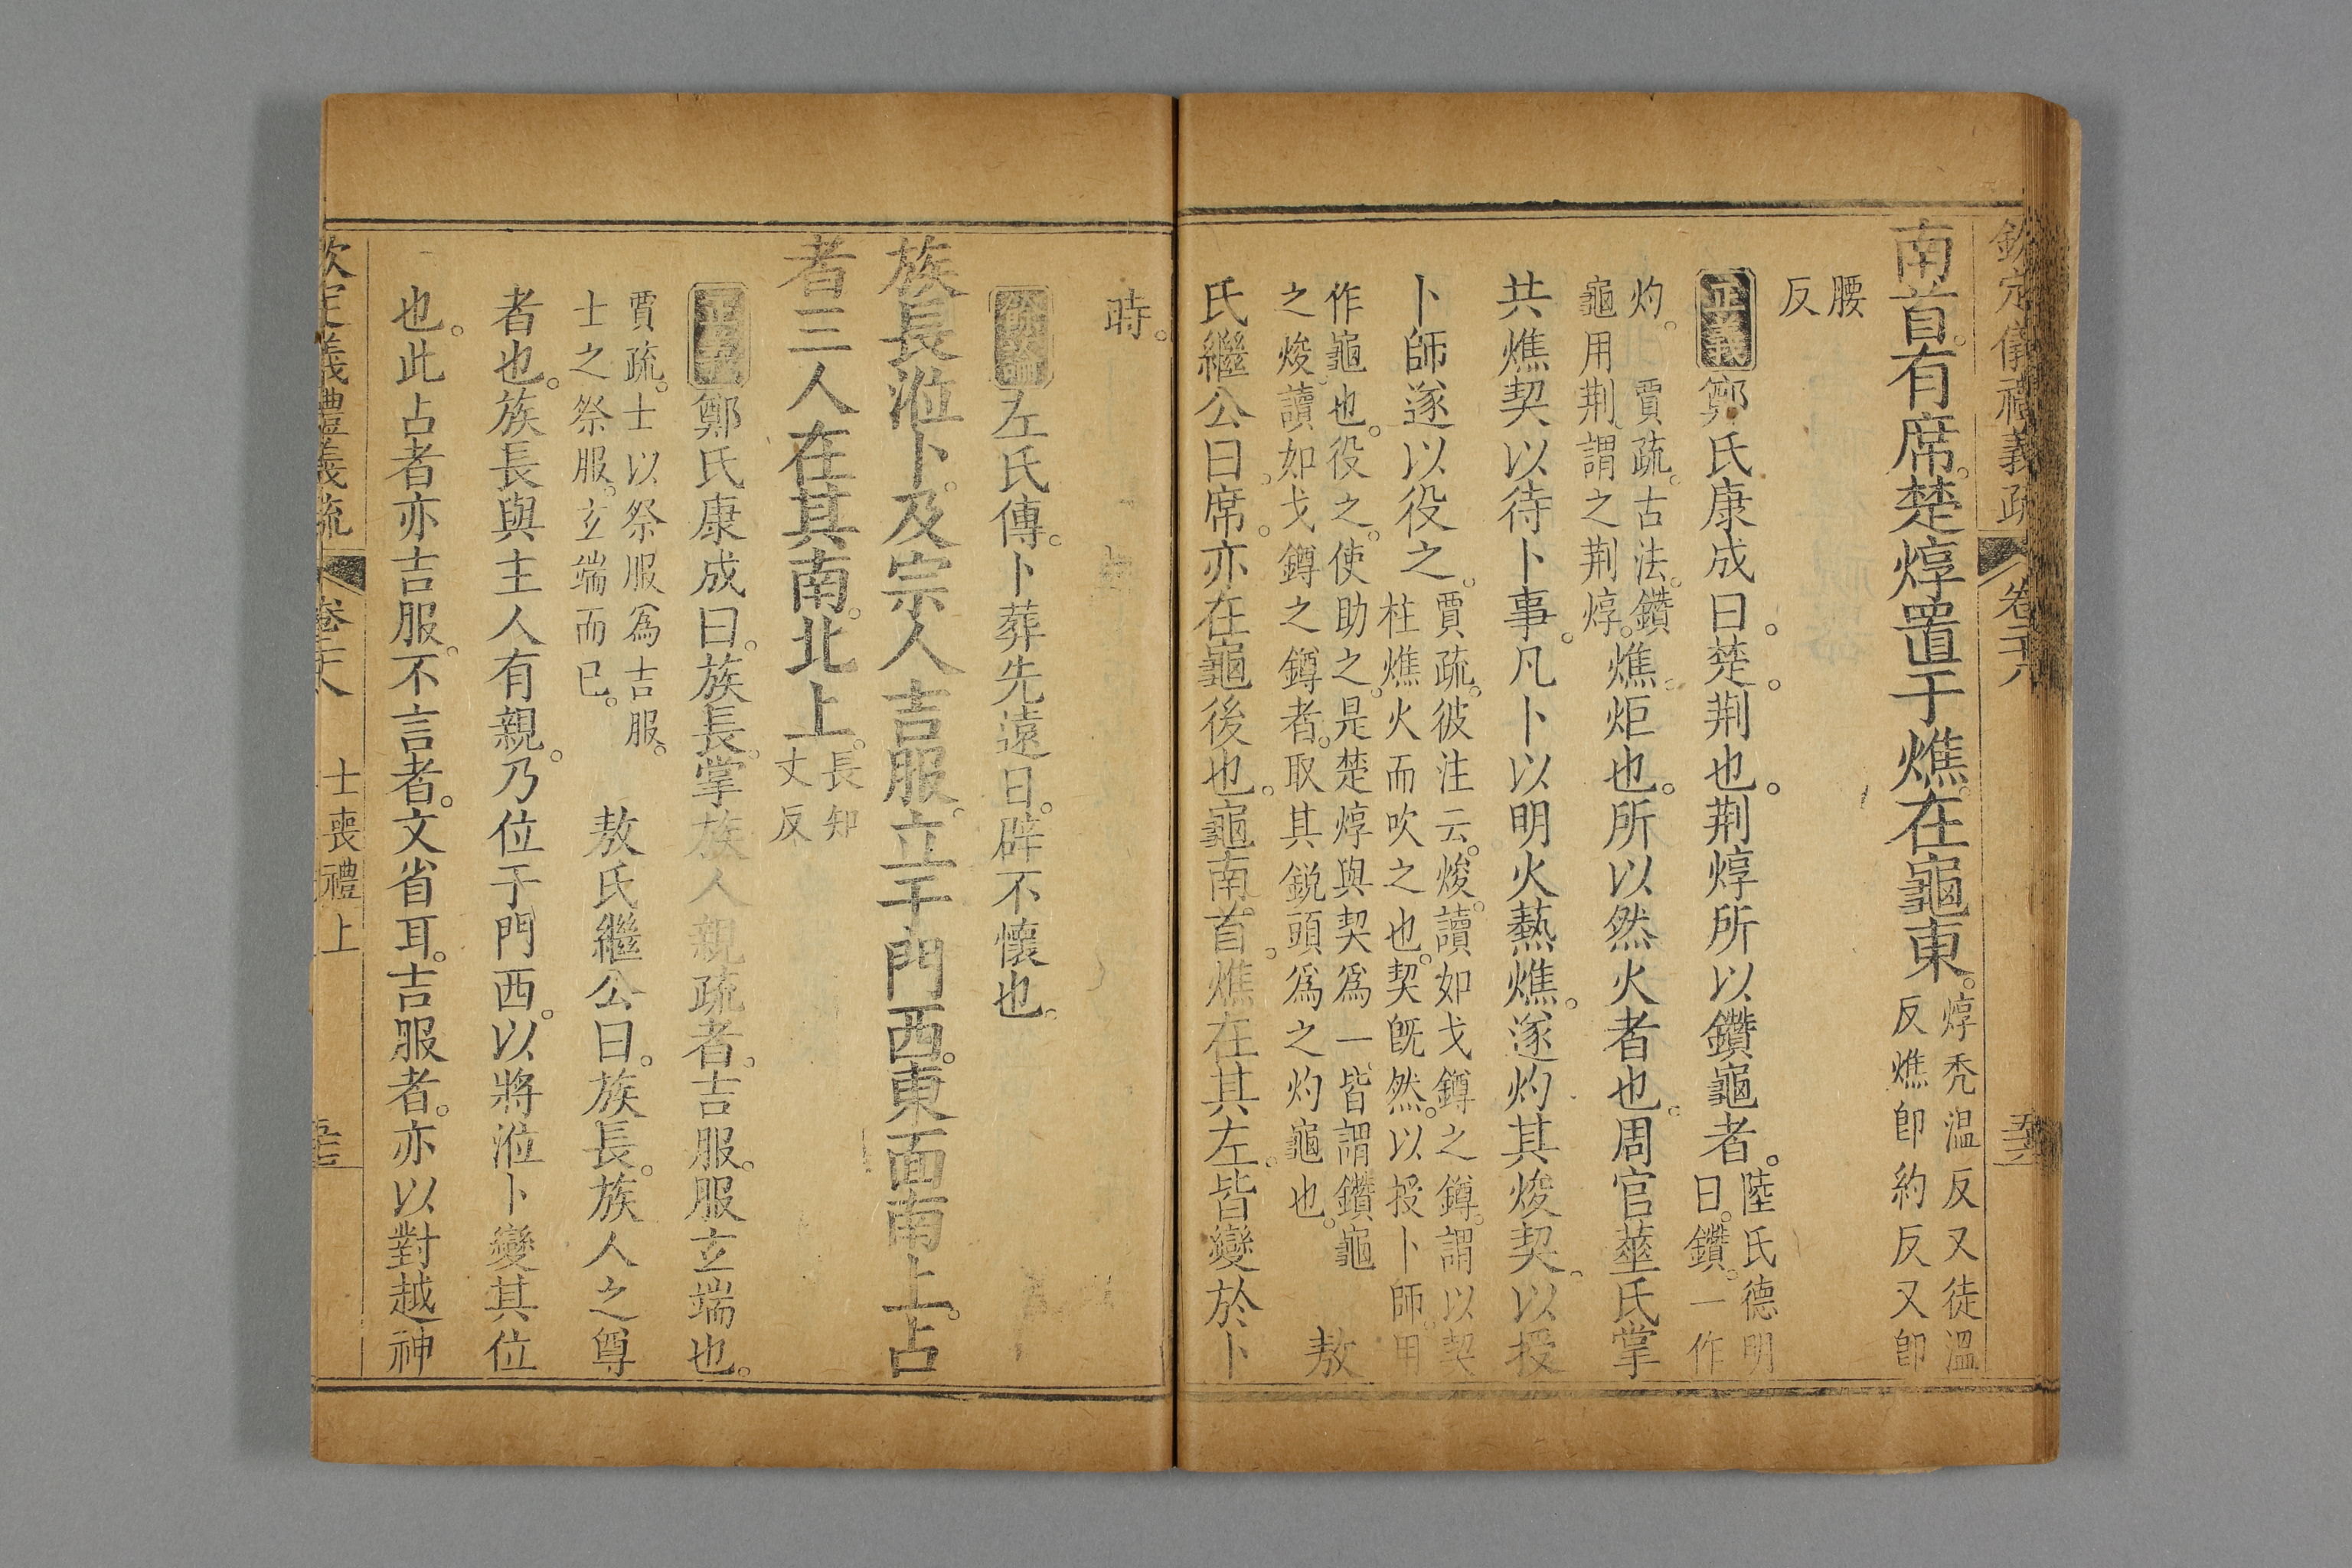 欽定儀禮義疏 卷二十八
南首。有席。楚焞置于燋。在龜東。焞禿溫反又徒溫
反燋卽約反又卽
腰
反
正義鄭氏康成曰。楚。荆也。荆焞所以鑽龜者。陸氏德明
曰。鑽。一作
灼。 賈疏。古法。鑽
龜用荆。謂之荆焞。燋炬也。所以然火者也。周官菙氏掌
共燋契以待卜事。凡卜以明火爇燋。遂灼其焌契。以授
卜師遂以役之。賈疏。彼注云。焌。讀如戈鐏之鐏。謂以契
柱燋火而吹之也。契旣然。以授卜師。用
作龜也。役之。使助之。是楚焞與契爲一。皆謂鑽龜
之焌。讀如戈鐏之鐏者。取其銳頭爲之灼龜也。 敖
氏繼公曰。席。亦在龜後也。龜南首。燋在其左。皆變於卜
時。
餘論左氏傳。卜葬先遠日。辟不懷也。
族長涖卜。及宗人吉服。立于門西。東面南上。占
者三人在其南。北上。長知
丈反
正義鄭氏康成曰。族長。掌族人親疏者。吉服。服玄端也。
賈疏。士以祭服爲吉服。
士之祭服。玄端而已。 敖氏繼公曰。族長。族人之尊
者也。族長與主人有親。乃位于門西。以將涖卜變其位
也。此占者亦吉服。不言者。文省耳。吉服者。亦以對越神
欽定義禮義疏 卷二十八 士喪禮上